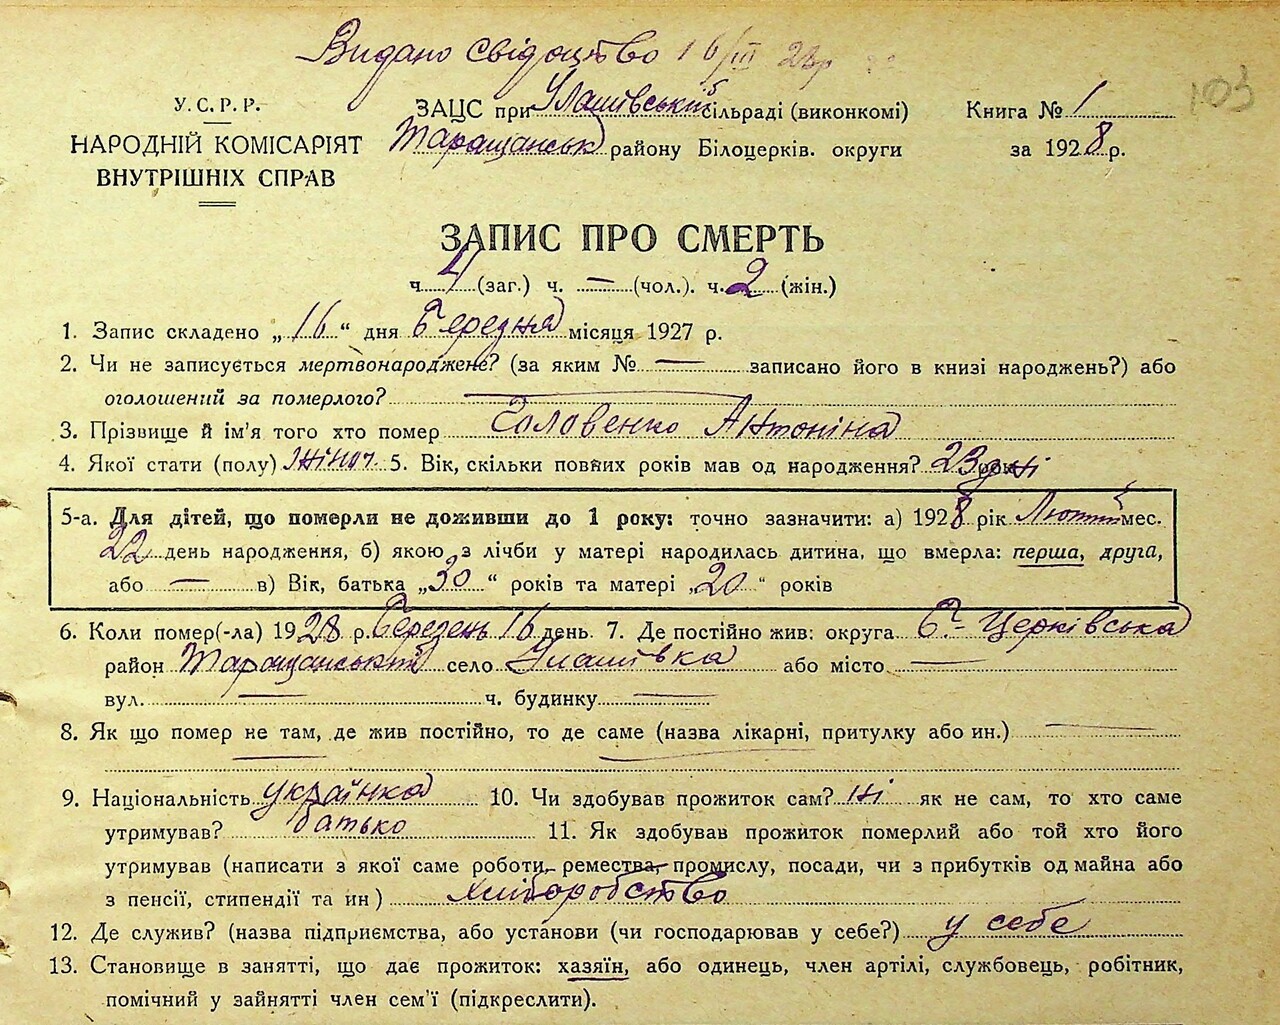 Видано свідоцтво 16/III 28р
103
У.С.Р.Р.
НАРОДНІЙ КОМІСАРІЯТ
ВНУТРІШНІХ СПРАВ
ЗАЦС при Улашівській сільраді (виконкомі)
Таращанськ району Білоцерків. округи
Книга № 1
за 1928 р.
ЗАПИС ПРО СМЕРТЬ
ч. 4 (заг.) ч. — (чол.). ч. 2 (жін.)
1. Запис складено „16“ дня Березня місяця 1927 р.
2. Чи не записується мертвонароджене? (за яким № — записано його в книзі народжень?) або
оголошений за померлого? —
3. Прізвище й ім'я того хто помер Головенко Антоніна
4. Якої стати (полу) жіноч. 5. Вік, скільки повних років мав од народження? 23 дні
5-а. Для дітей, що померли не доживши до 1 року: точно зазначити: а) 1928 рік Лютий мес.
22 день народження, б) якою з лічби у матері народилась дитина, що вмерла: перша, друга,
або — в) Вік, батька „30“ років та матері „20“ років
6. Коли помер(-ла) 1928 р. Березень 16 день. 7. Де постійно жив: округа Б-Церківська
район Таращанський село Улашівка або місто —
вул. — ч. будинку —
8. Як що помер не там, де жив постійно, то де саме (назва лікарні, притулку або ин.) —
9. Національність українка 10. Чи здобував прожиток сам? ні як не сам, то хто саме
утримував? батько 11. Як здобував прожиток померлий або той хто його
утримував (написати з якої саме роботи, ремества, промислу, посади, чи з прибутків од майна або
з пенсії, стипендії та ин) хліборобство
12. Де служив? (назва підприємства, або установи (чи господарював у себе?) у себе
13. Становище в занятті, що дає прожиток: хазяїн, або одинець, член артілі, службовець, робітник,
помічний у зайнятті член сем'ї (підкреслити).